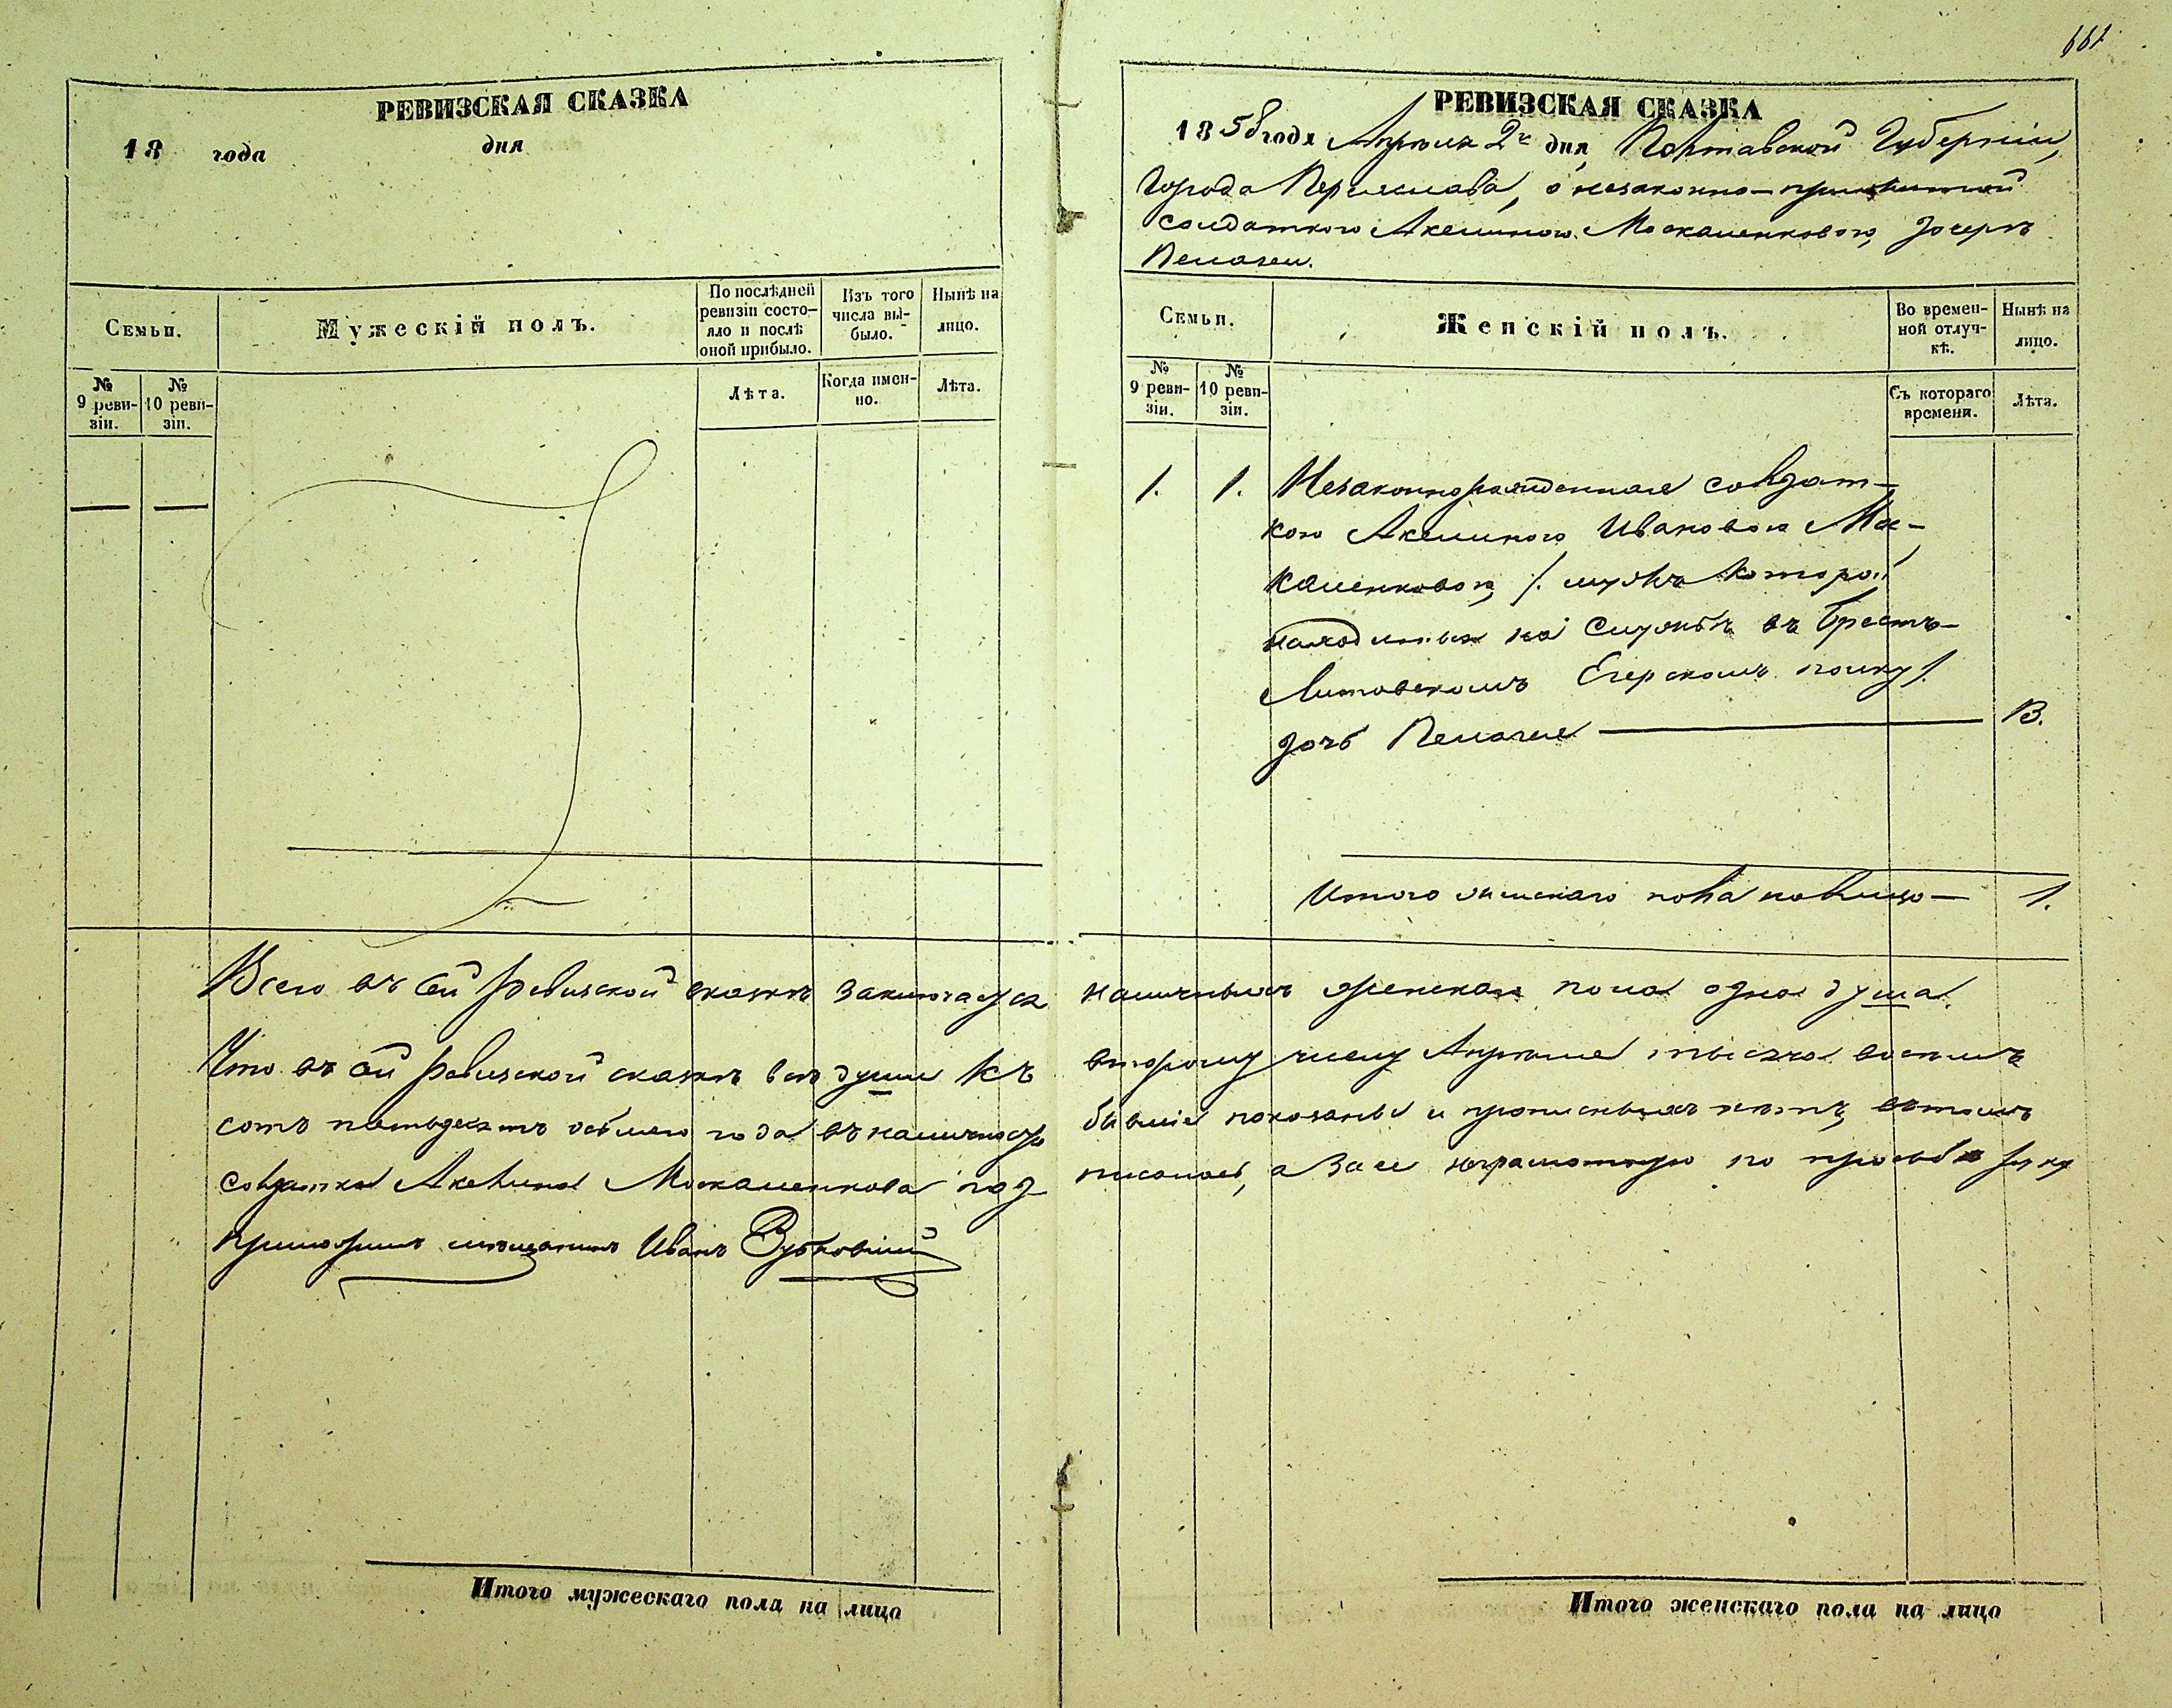 661
РЕВИЗСКАЯ СКАЗКА
18 года дня
Семьи.
Мужескій полъ.
По послѣдней ревизіи состояло и послѣ оной прибыло.
Изъ того числа выбыло.
Нынѣ на лицо.
№ 9 ревизіи.
№ 10 ревизіи.
Лѣта.
Когда именно.
Лѣта.
РЕВИЗСКАЯ СКАЗКА
1858 года Апрѣля 2 дня Полтавской Губерніи,
Города Переяслава, о незаконно-прижитой
солдаткою Акелиною Москаленковою дочерѣ
Пелагеи.
Семьи.
Женскій полъ.
Во временной отлучкѣ.
Нынѣ на лицо.
№ 9 ревизіи.
№ 10 ревизіи.
Съ котораго времени.
Лѣта.
1. 1. Незаконнорожденная солдат-
кою Акелиною Ивановою Мос-
каленковою /. мужъ которой
находится на службѣ въ Брестъ-
Литовскомъ Егерскомъ полку /.
дочь Пелагея 13.
Итого женскаго пола на лицо — 1.
Всего въ сей ревизской сказкѣ заключается наличныхъ женскаго пола одна душа.
Что въ сей ревизской сказкѣ всѣ души къ второму числу Апрѣля тысяча восемь
сотъ пятьдесятъ осьмаго года въ наличности бывшіе показаны и прописныхъ нѣтъ, въ томъ
солдатка Акелина Москаленкова под- писалась, а за ее неграмотную по просьбѣ руку
приложилъ мѣщанинъ Иванъ
Итого мужескаго пола на лицо
Итого женскаго пола на лицо